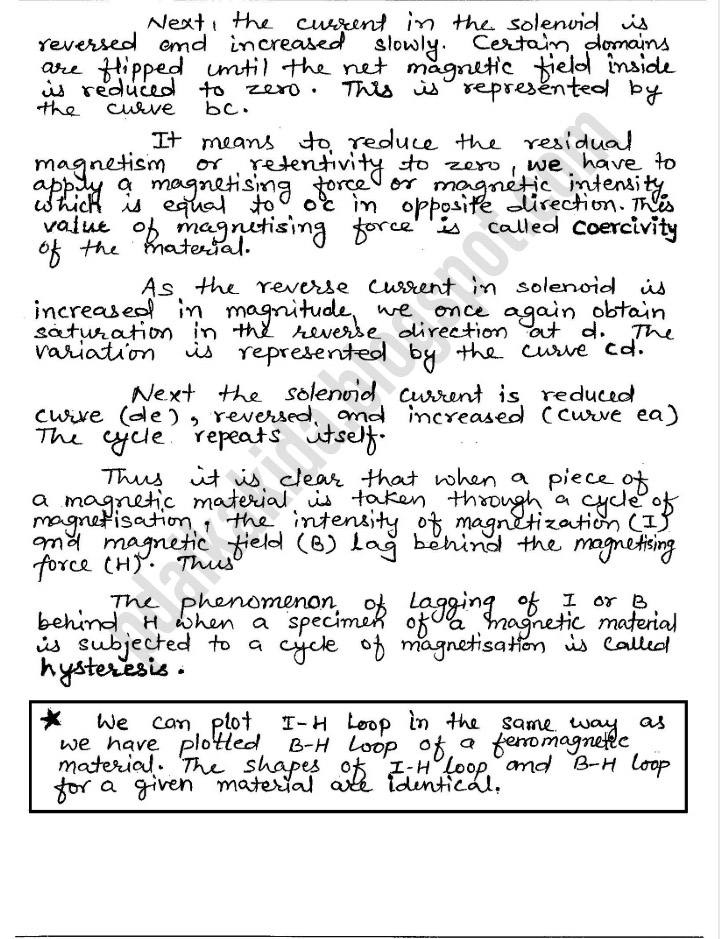 Next, the current in the solenoid is
reversed and increased slowly. Certain domains
are flipped until the net magnetic field inside
is reduced to zero. This is represented by
the curve bc.
It means to reduce the residual
magnetism or retentivity to zero, we have to
apply a magnetising force or magnetic intensity
which is equal to oc in opposite direction. This
value of magnetising force is called Coercivity
of the material.
As the reverse current in solenoid is
increased in magnitude, we once again obtain
saturation in the reverse direction at d. The
variation is represented by the curve cd.
Next the solenoid current is reduced
curve (de), reversed, and increased (curve ea)
The cycle repeats itself.
Thus it is clear that when a piece of
a magnetic material is taken through a cycle of
magnetisation, the intensity of magnetization (I)
and magnetic field (B) lag behind the magnetising
force (H). Thus
The phenomenon of lagging of I or B
behind H when a specimen of a magnetic material
is subjected to a cycle of magnetisation is called
hysteresis.
★ We can plot I-H loop in the same way as
we have plotted B-H loop of a ferromagnetic
material. The shapes of I-H loop and B-H loop
for a given material are identical.